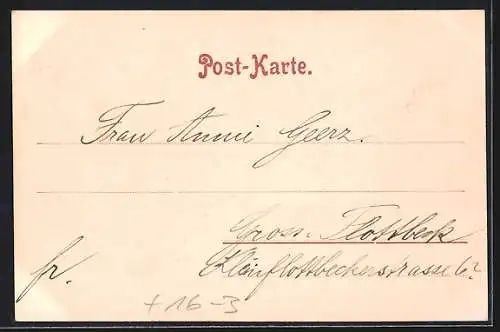 Post-Karte.
Frau Anni Geerz.
Gross-Flottbeck
Kleinflottbeckerstrasse 6?
fr.
+16-3